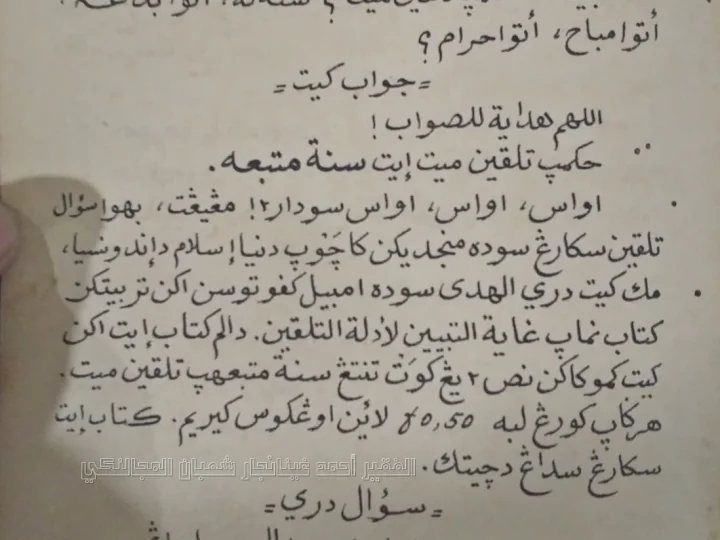 أتوا مباح، أتوا حرام؟
=جواب كيت=
اللهم هداية للصواب!
حكمڽ تلقين ميت إيت سنة متبعه.
اواس، اواس، اواس سودار٢! مڠيڠت، بهوا سؤال
تلقين سكارڠ سوده منجديكن كاچوڽ دنيا إسلام دإندونسيا،
مك كيت دري الهدى سوده امبيل كفوتوسن اكن تربيتكن
كتاب نماڽ غاية التبيين لأدلة التلقين. دالم كتاب إيت اكن
كيت كموكاكن نص٢ يڠ كوَت تنتڠ سنة متبعهڽ تلقين ميت.
هركاڽ كورڠ لبه 50,50 لائين اوڠكوس كيريم. كتاب إيت
سكارڠ سداڠ دچيتك.
الفقير أحمد فينانجار شعبان المجالنكي
=سؤال دري=